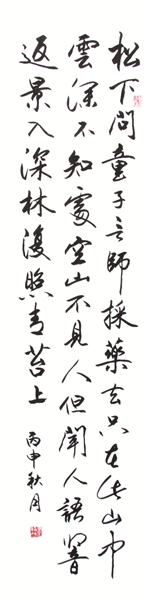 松下問童子言師採藥去只在此山中
雲深不知處空山不見人但聞人語響
返景入深林復照青苔上
丙申秋月